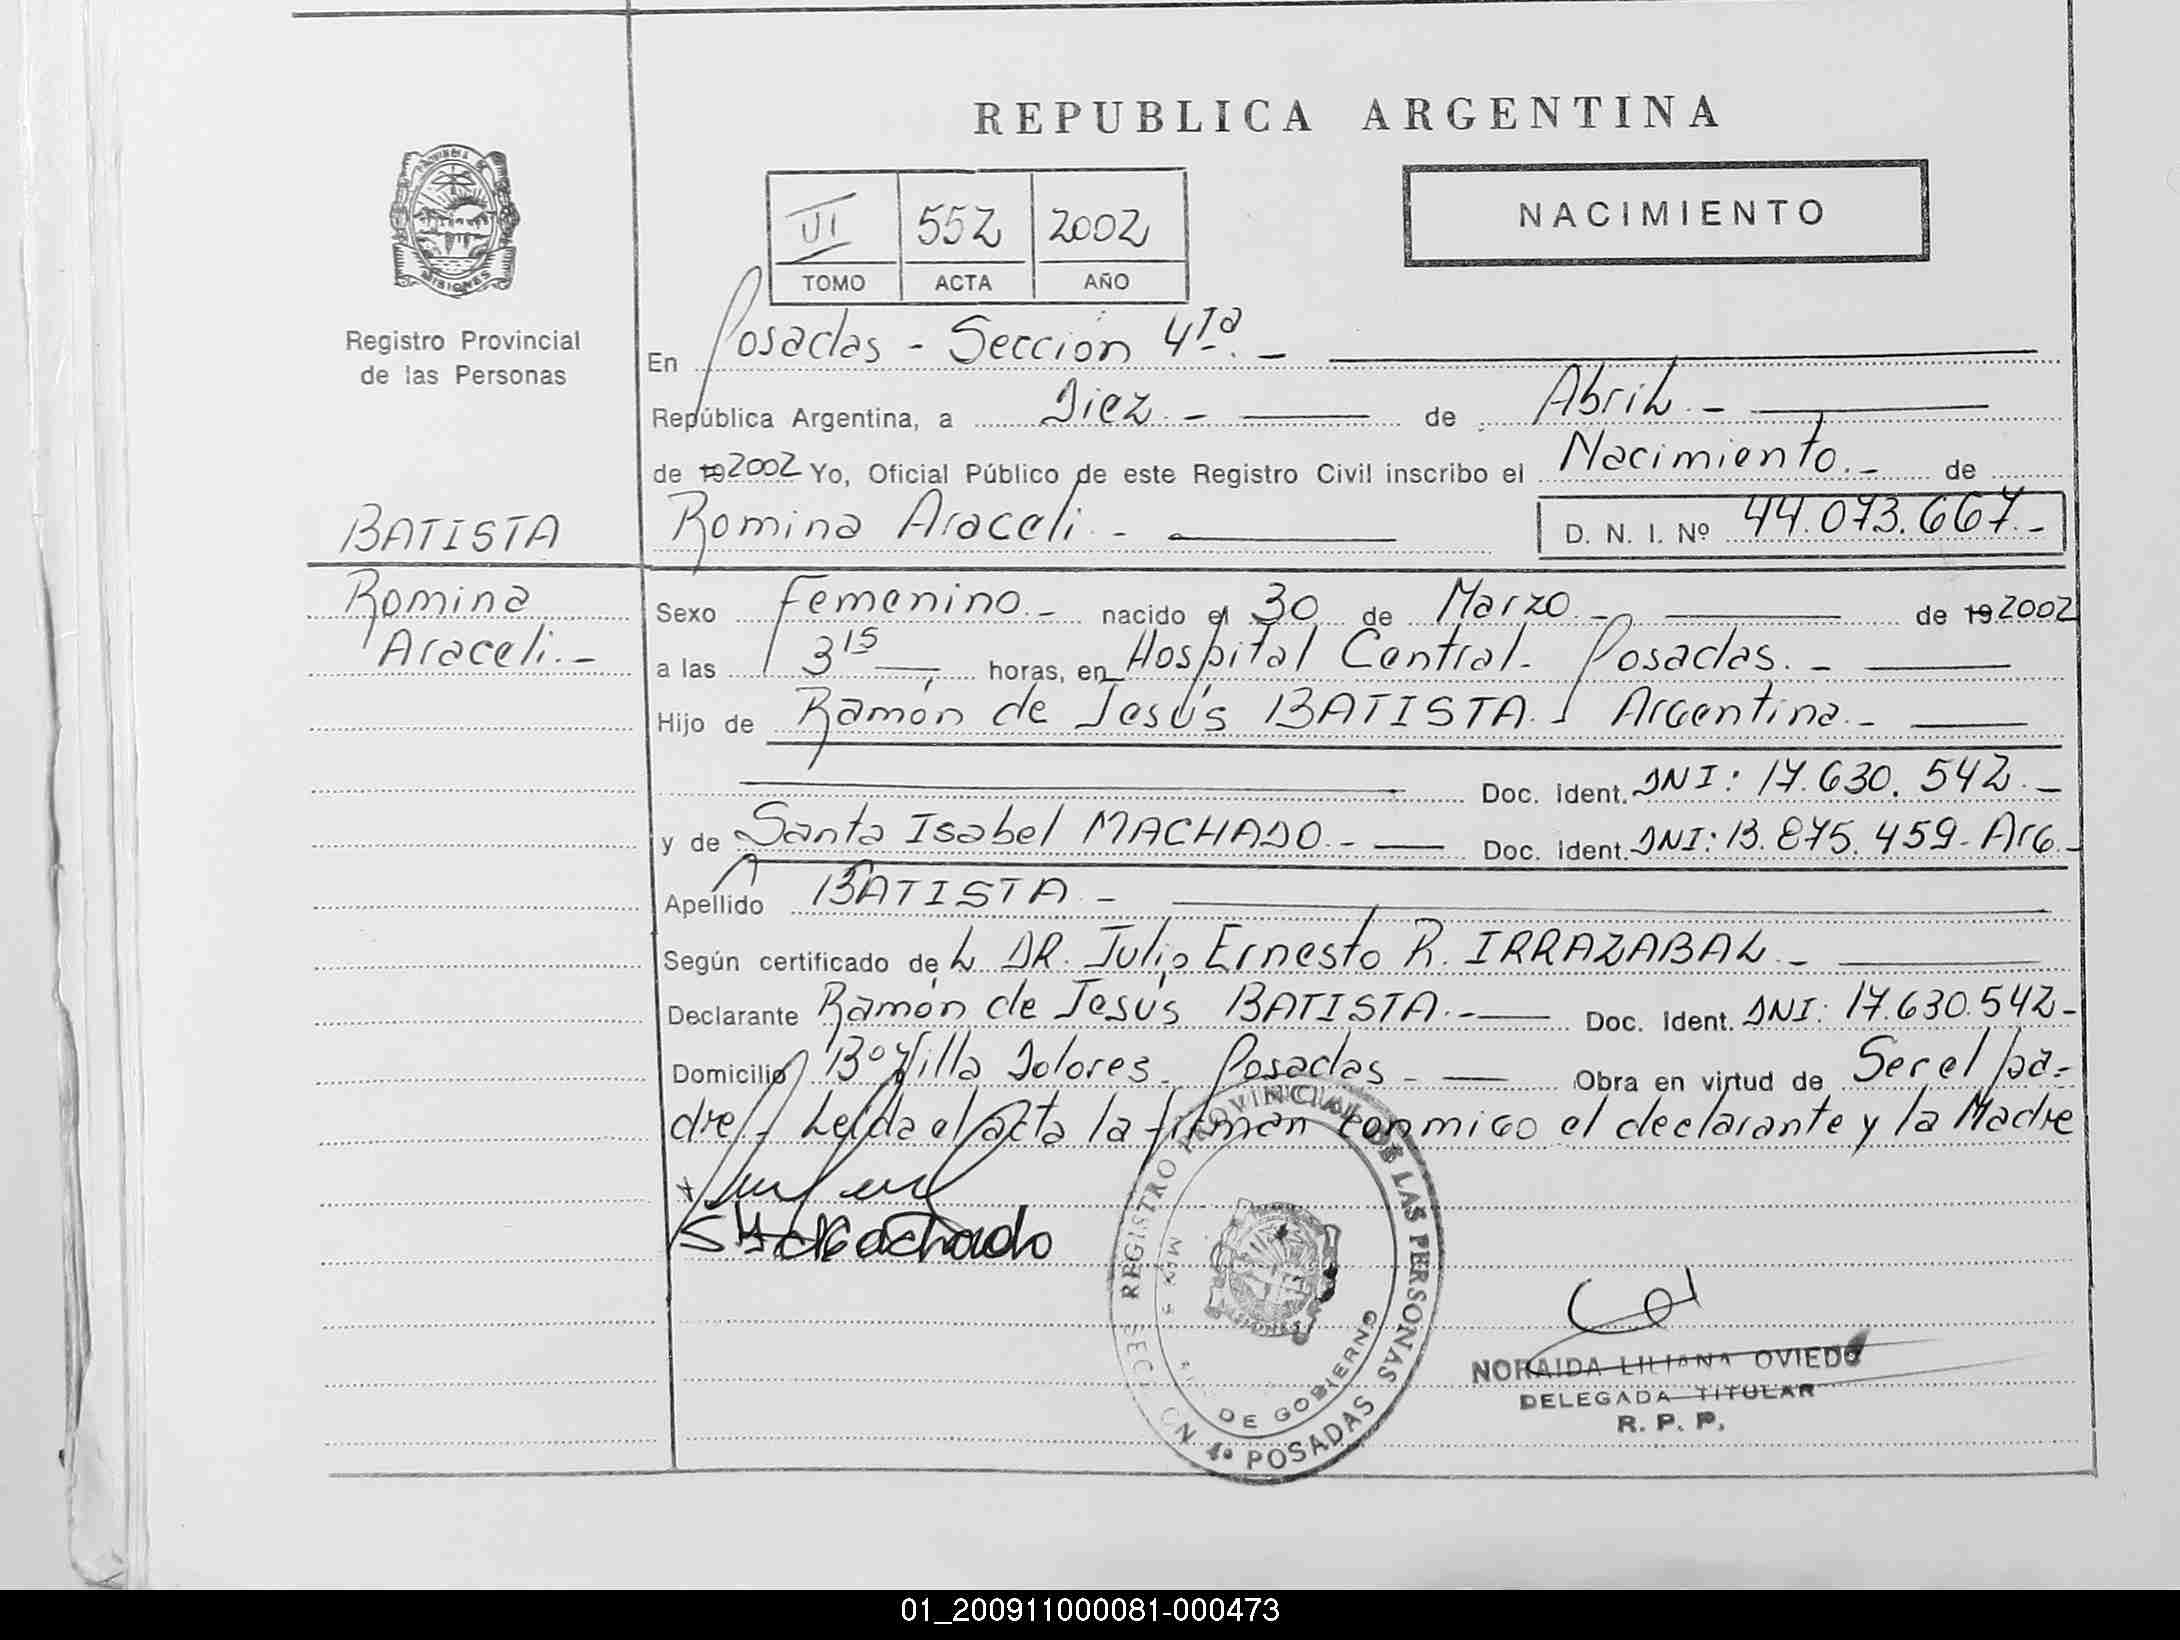 REPUBLICA ARGENTINA
PROVINCIA DE
MISIONES
Registro Provincial
de las Personas
VI 552 2002
TOMO ACTA AÑO
NACIMIENTO
En Posadas - Sección 4ta. -
República Argentina, a Diez. - de Abril. -
de 19 2002 Yo, Oficial Público de este Registro Civil inscribo el Nacimiento. - de
BATISTA
Romina Araceli. - D. N. I. Nº 44.073.667. -
Romina
Araceli. -
Sexo Femenino. - nacido el 30 de Marzo. - de 19 2002
a las 3 15 horas, en Hospital Central. Posadas. -
Hijo de Ramón de Jesús BATISTA. Argentina. -
Doc. Ident. DNI: 17.630.542. -
y de Santa Isabel MACHADO. - Doc. Ident. DNI: 13.875.459. Arg. -
Apellido BATISTA. -
Según certificado de L DR. Julio Ernesto R. IRRAZABAL. -
Declarante Ramón de Jesús BATISTA. - Doc. Ident. DNI: 17.630.542 -
Domicilio Bº Villa Dolores. Posadas - Obra en virtud de Ser el pa-
dre. - Leída el acta la firman conmigo el declarante y la Madre
Machado
REGISTRO PROVINCIAL DE LAS PERSONAS
DE GOBIERNO
SECCION 4ª POSADAS
NORAIDA LILIANA OVIEDO
DELEGADA TITULAR
R. P. P.
01_200911000081-000473